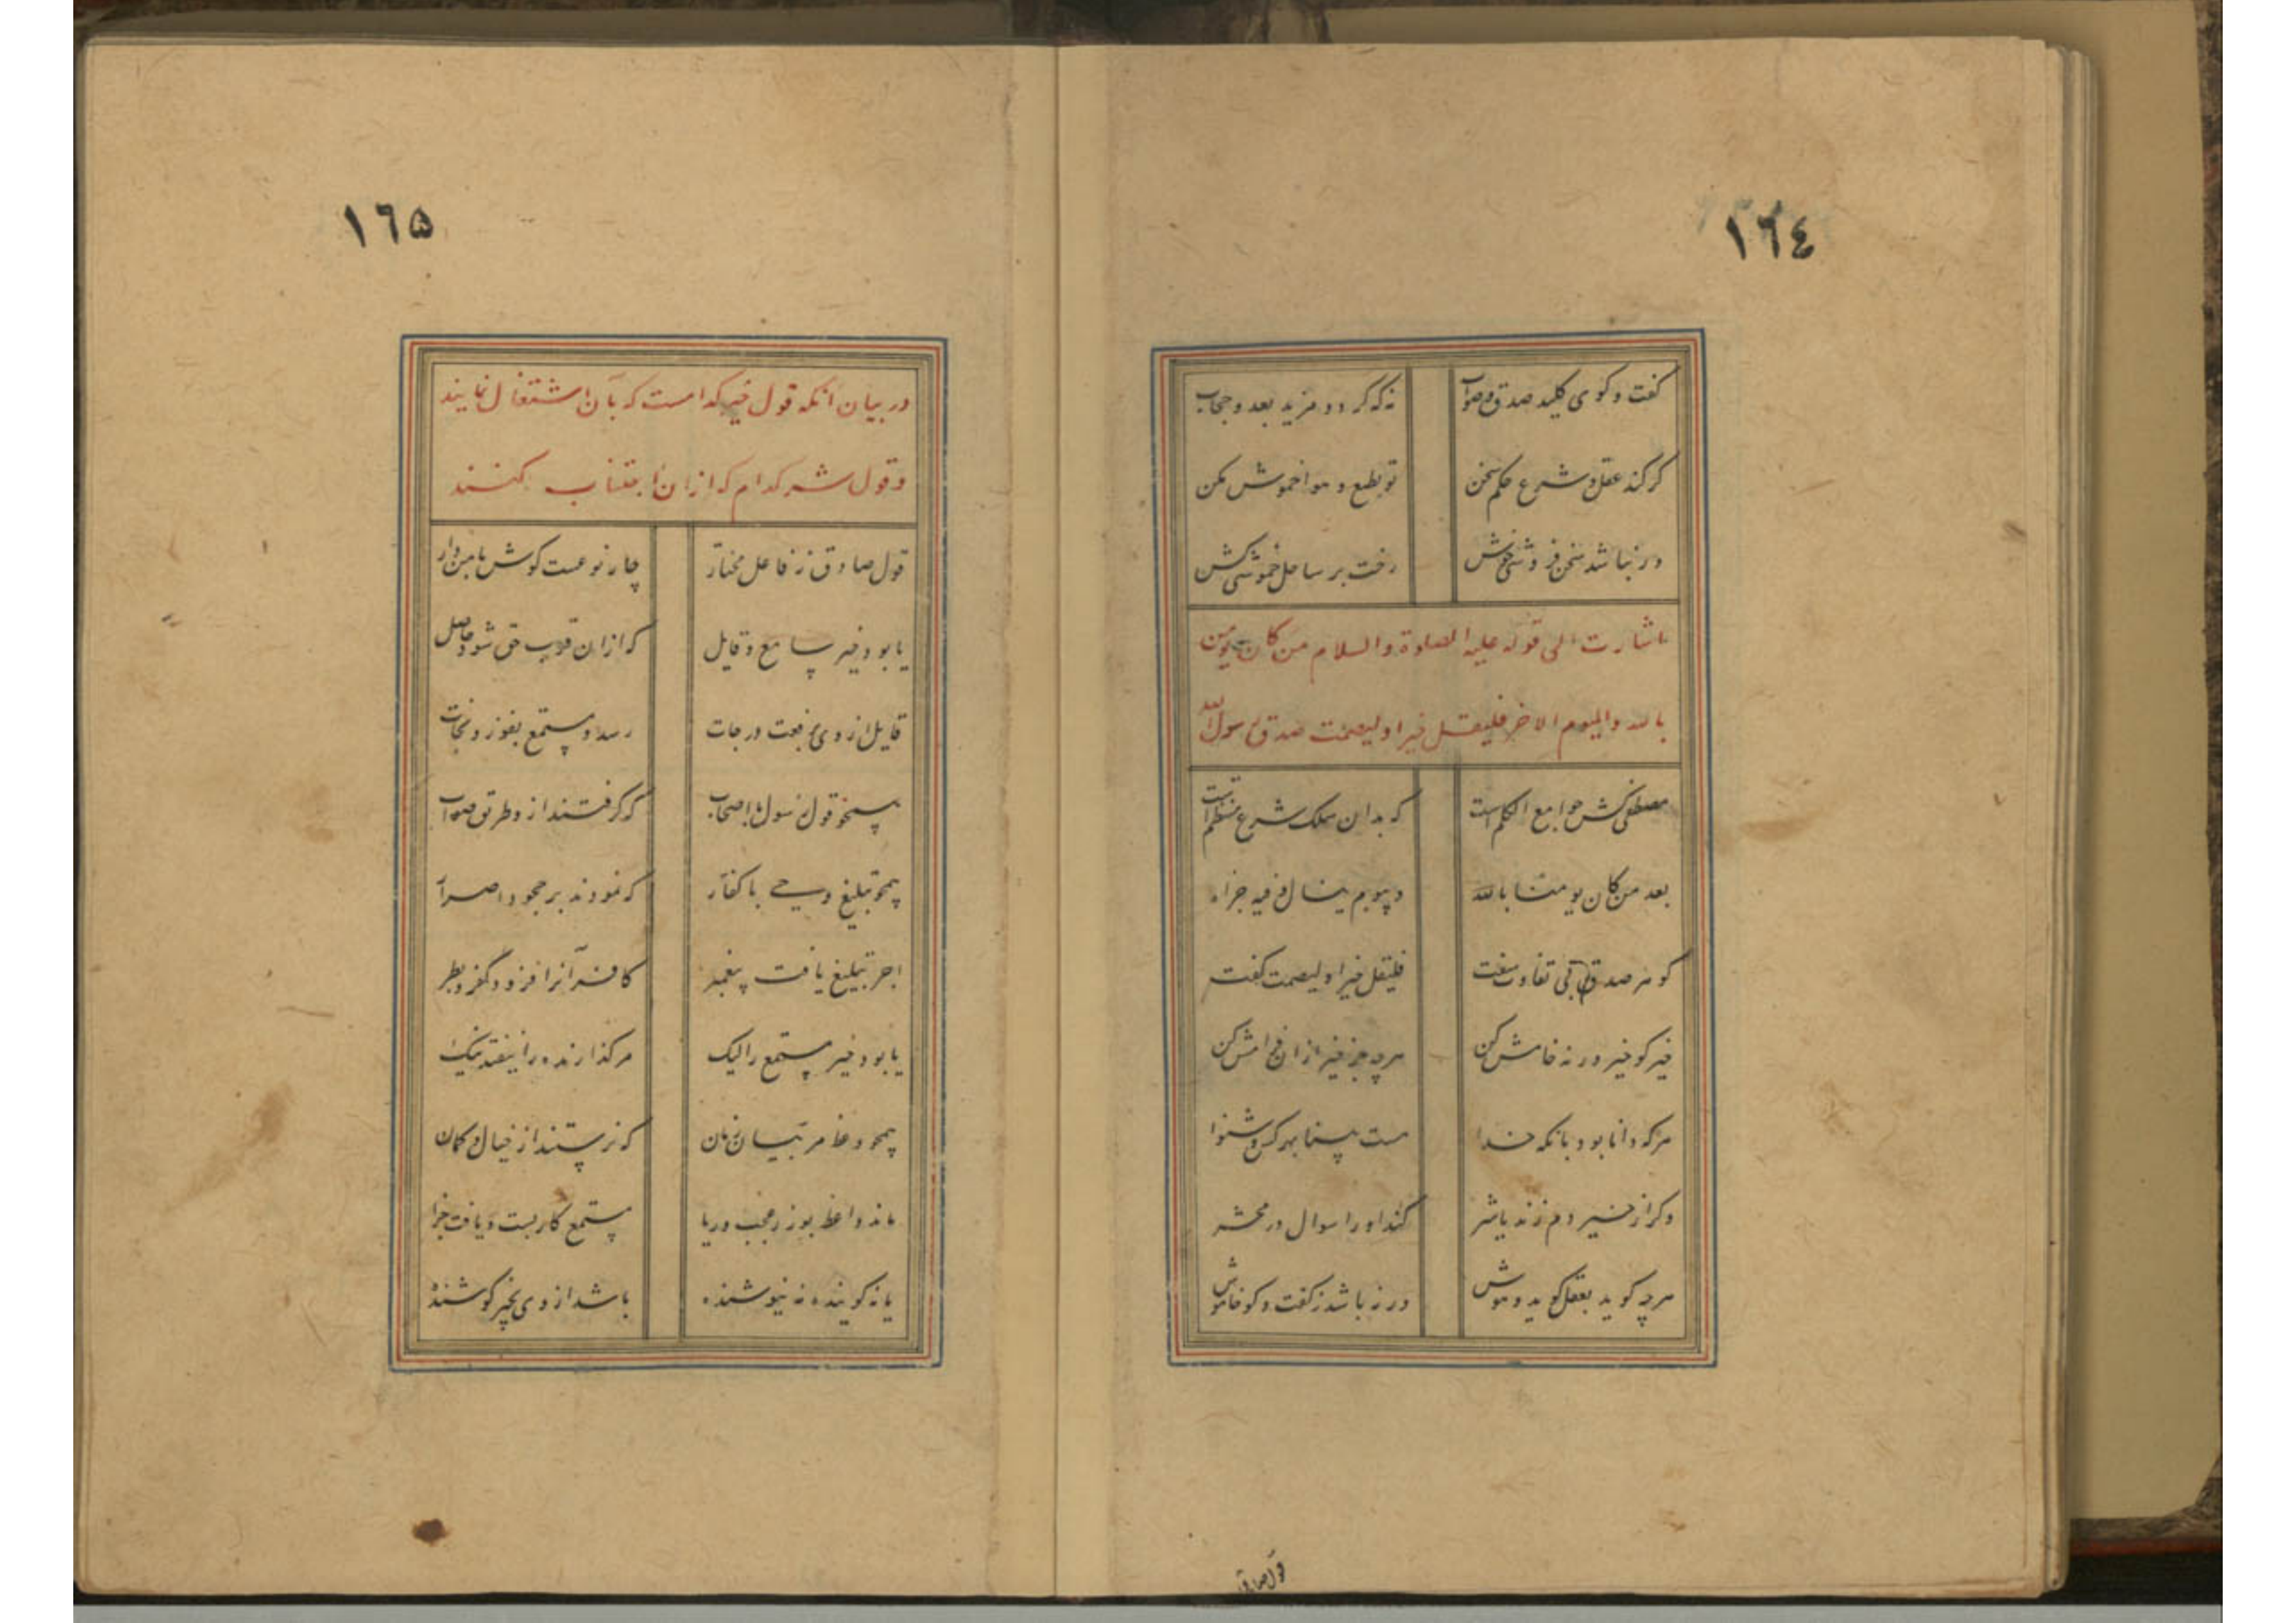 ١٦٤
گفت و کوی کلید صدق و صواب نه که گردد مزید بعد و حجاب
گر کند عقل و شرع حکم سخن تو بطبع و هوا خموش مکن
ور نباشد سخن فروشی خوش رخت بر ساحل خموشی کش
اشارت الی قوله علیه الصلوة والسلام من کان یومن
بالله والیوم الاخر فلیقل خیرا او لیصمت صدق رسول الله
مصطفی کش جوامع الکلم است که بدان سلک شرع منتظم است
بعد من کان یومنا بالله وبیوم ینال فیه جزاه
گوهر صدق بی تفاوت سفت فلیقل خیرا او لیصمت گفت
خیر کو خیر ورنه خامش کن هرچه جز خیر ازان فرامش کن
هرکه دانا بود بانکه خدا هست بینا بهر کس و شنوا
وگر از خیر دم زند یا شر کند او را سوال در محشر
هرچه گوید بعقل گوید و هوش ورنه باشد ز گفت و کو خاموش
قول صادق
١٦۵
در بیان آنکه قول خیر کدامست که بآن اشتغال نمایند
و قول شر کدام که ازان اجتناب کنند
قول صادق ز فاعل مختار چار نوعست گوش با من دار
یا بود خیر سامع و قایل که ازان قرب حق شود حاصل
قایل از وی برفعت درجات رسد و مستمع بفوز و نجات
همچو قول رسول با اصحاب که گرفتند ازو طریق صواب
همچو تبلیغ وحی با کفار که نمودند بر جحود اصرار
اجر تبلیغ یافت پیغمبر کافر آنرا فزود کفر و بطر
یا بود خیر مستمع را لیک مر گذارنده را نیفتد نیک
همچو وعظ مرائیان زمان که نرستند از خیال و گمان
ماند واعظ بوزر عجب و ریا مستمع کار بست و یافت جزا
یا نه گوینده نه نیوشنده باشد از وی بخیر کوشنده